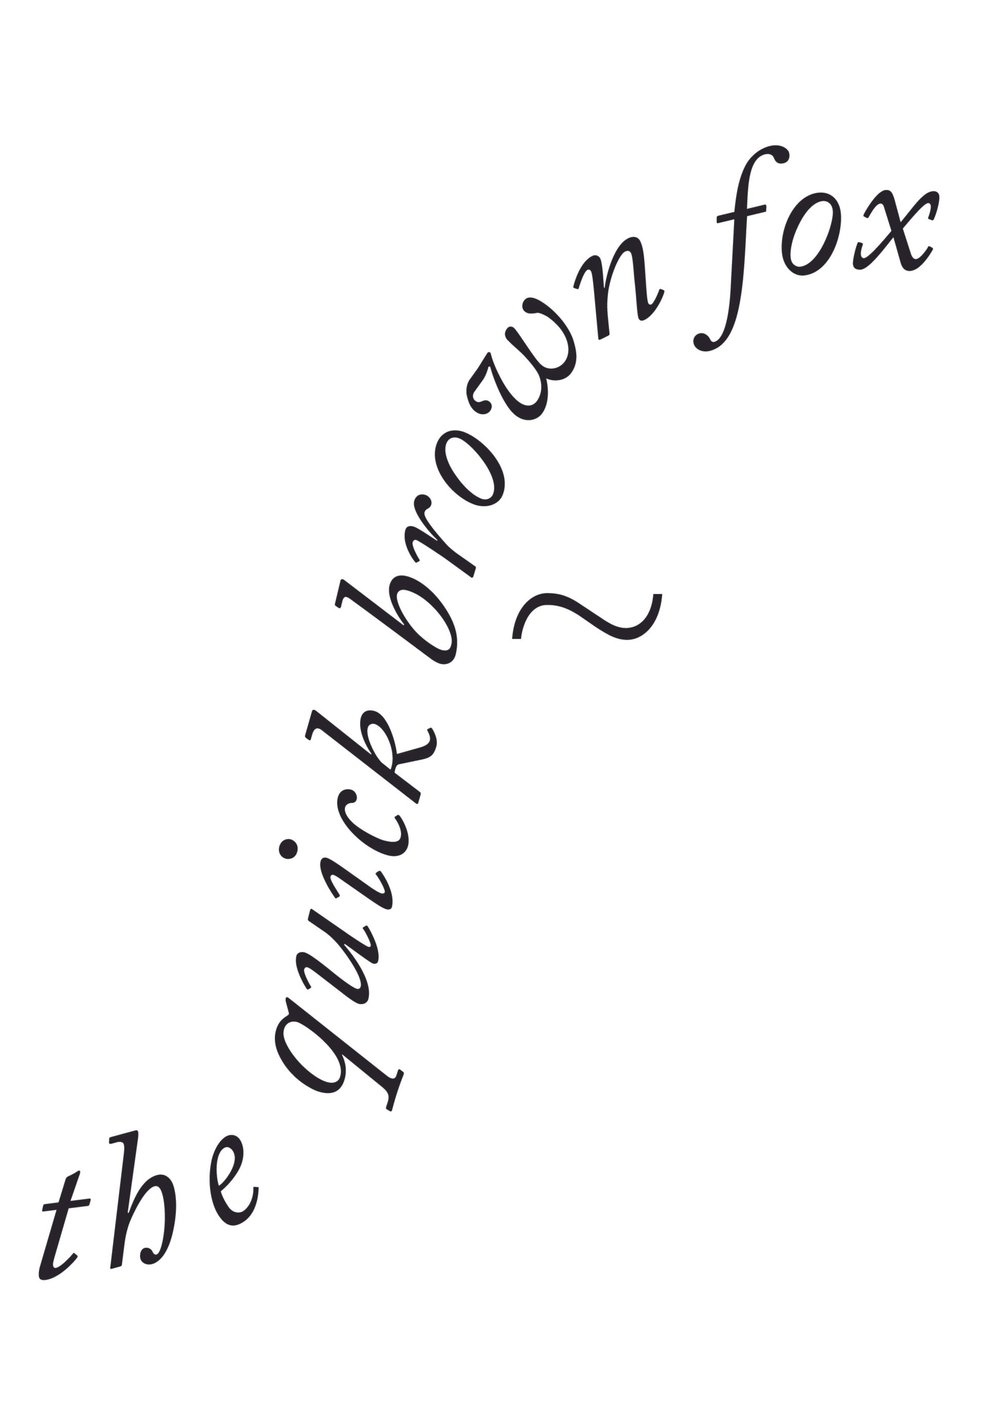 the quick brown fox
~